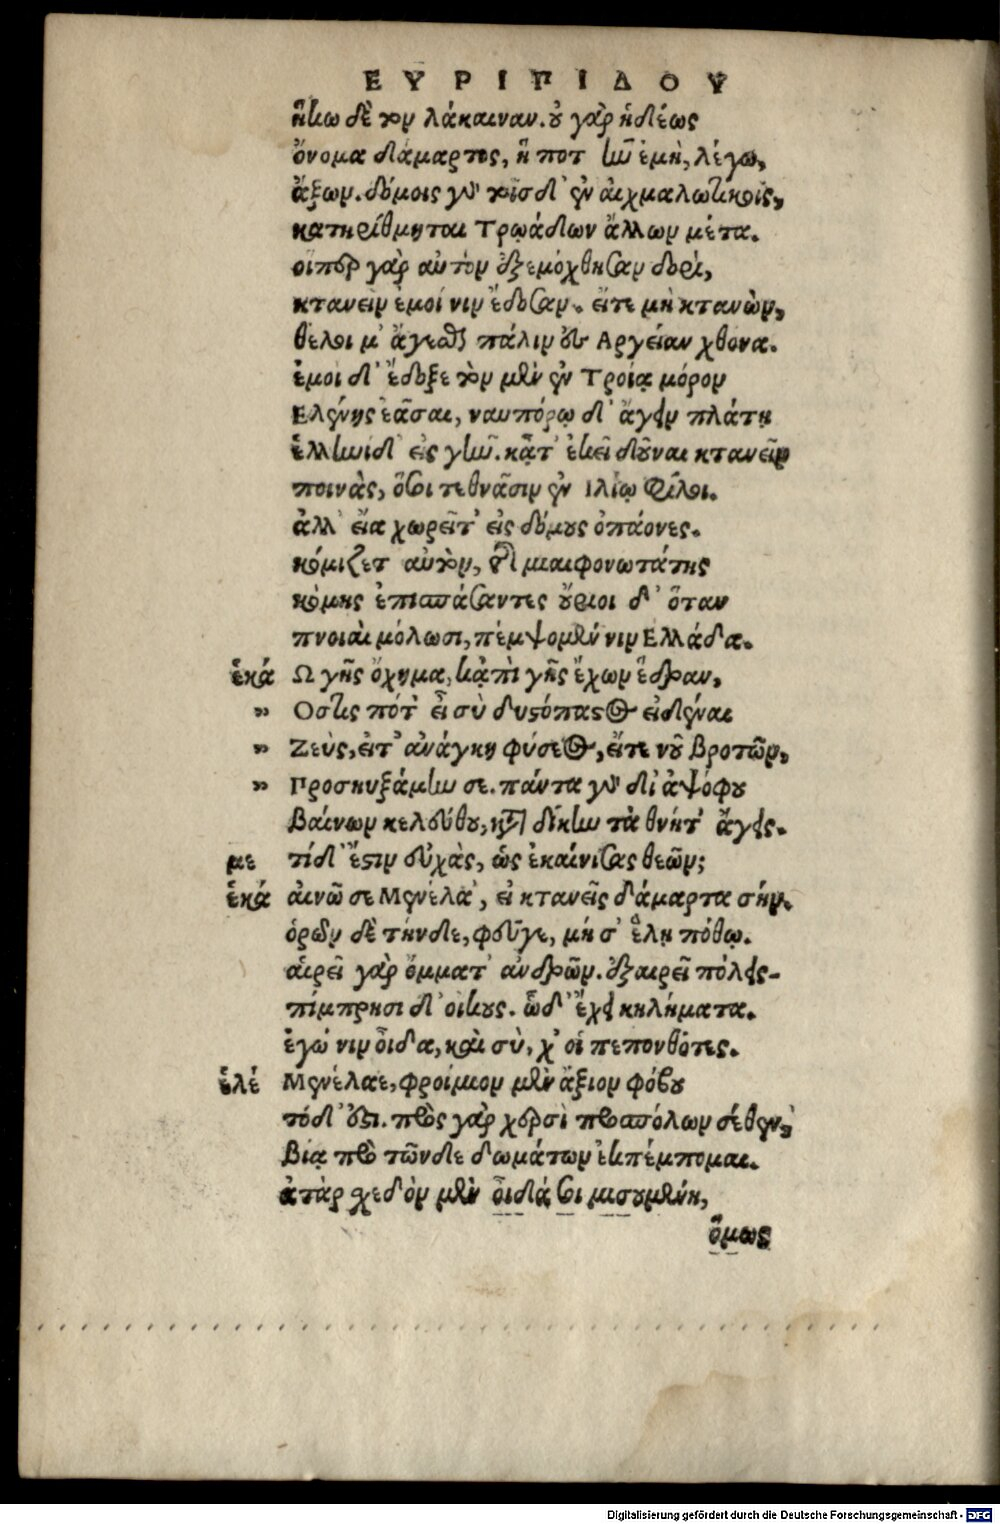 ΕΥΡΙΠΙΔΟΥ
ἥκω δὲ τὴν λάκαιναν. οὐ γὰρ ἡδέως
ὄνομα δάμαρτος, ἥ ποτ' ἦν ἐμὴ, λέγω,
ἄξων. δόμοις γὰρ τοῖσδ' ἐν αἰχμαλωτικοῖς,
κατηρίθμηται Τρῳάδων ἄλλων μέτα.
οἵπερ γὰρ αὐτὴν ἐξεμόχθησαν δορὶ,
κτανεῖν ἐμοί νιν ἔδοσαν. εἴτε μὴ κτανὼν,
θέλοι μ' ἄγεσθαι πάλιν ἐς Αργείαν χθόνα.
ἐμοὶ δ' ἔδοξε τὸν μὲν ἐν Τροίᾳ μόρον
Ελένης ἐᾶσαι, ναυπόρῳ δ' ἄγειν πλάτῃ
ἑλλωίδ' εἰς γῆν. κᾆτ' ἐκεῖ δοῦναι κτανεῖν
ποινὰς, ὅσοι τεθνᾶσιν ἐν Ιλίῳ φίλοι.
ἀλλ' εἶα χωρεῖτ' εἰς δόμους ὀπάονες.
κόμιζετ αὐτὴν, τῆς μιαιφονωτάτης
κόμης ἐπισπάσαντες οὔριοι δ' ὅταν
πνοιαὶ μόλωσι, πέμψομέν νιν Ελλάδα.
ἑκά Ω γῆς ὄχημα, κᾀπὶ γῆς ἔχων ἕδραν,
" Οστις πότ' εἶ σὺ δυςόπαςος εἰδέναι
" Ζεὺς, εἴτ' ἀνάγκη φύσεος, εἴτε νοῦ βροτῶν,
" Προσηυξάμην σε. πάντα γὰρ δι' ἀψόφου
βαίνων κελεύθου, κατὰ δίκην τὰ θνήτ' ἄγεις.
με τίδ' ἔςιν εὐχὰς, ὡς ἐκαίνισας θεῶν;
ἑκά αἰνῶ σε Μενέλα', εἰ κτανεῖς δάμαρτα σήν.
ὁρῶν δὲ τήνδε, φεῦγε, μή σ' ἕλῃ πόθῳ.
αἱρεῖ γὰρ ὄμματ' ἀνδρῶν. ἐξαιρεῖ πόλεις-
πίμπρησι δ' οἴκους. ὧδ' ἔχει κηλήματα.
ἐγώ νιν οἶδα, καὶ σὺ, χ' οἱ πεπονθότες.
ἑλέ Μενέλαε, φροίμιον μὲν ἄξιον φόβου
τόδ' ἐςι. πρὸς γὰρ χερσὶ προσπόλων σέθεν,
βίᾳ πρὸ τῶνδε δωμάτων ἐκπέμπομαι.
ἀτὰρ σχεδὸν μὲν οἶδά σοι μισουμένη,
ὅμως
Digitalisierung gefördert durch die Deutsche Forschungsgemeinschaft - DFG